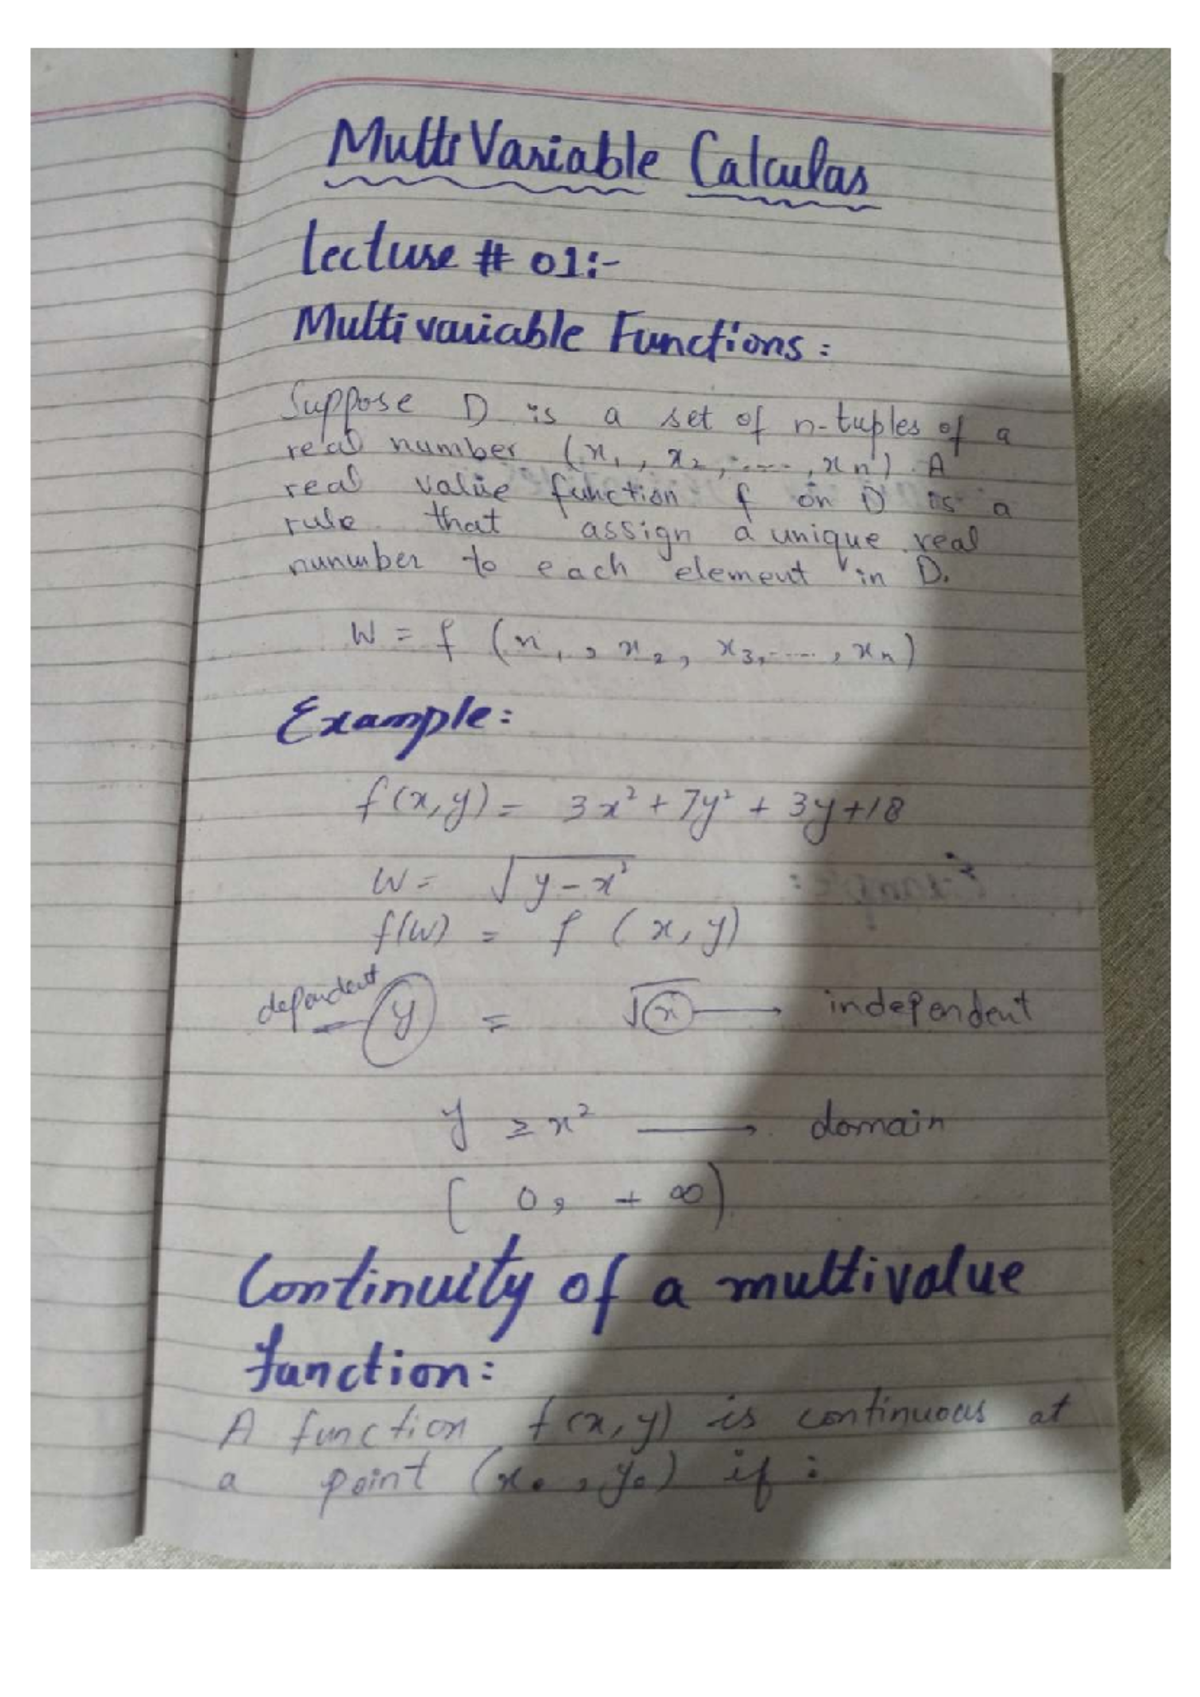 MultiVariable Calculas
Lecture # 01:-
Multivariable Functions:
Suppose D is a set of n-tuples of a
real number (x₁, x₂, ...., xn). A
real value function f on D is a
rule that assign a unique real
nunumber to each element in D.
W = f (x₁, x₂, x₃, ...., xn)
Example:
f(x,y) = 3x² + 7y² + 3y + 18
W = √y - x²
f(W) = f (x, y)
dependent y = √x → independent
y ≥ x² → domain
[ 0, + ∞)
Continuity of a multivalue
function:
A function f(x,y) is continuous at
a point (x₀, y₀) if :